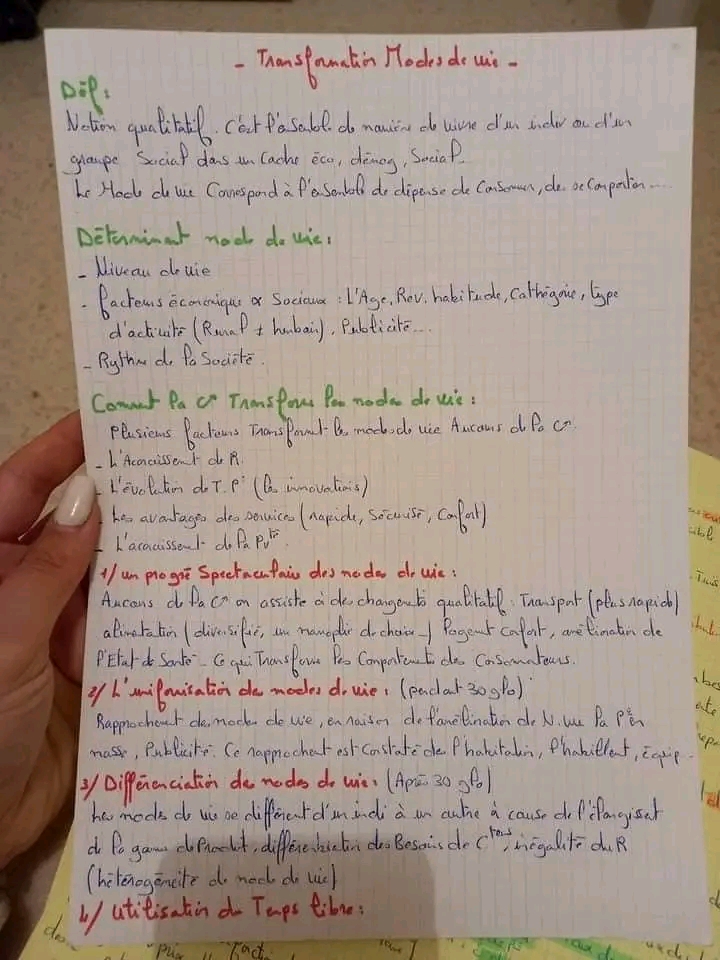 - Transformation Modes de vie -
Déf:
Notion qualitatif. C'est l'ensemble de manière de vivre d'un indiv ou d'un
groupe Social dans un Cadre éco, démog, Social.
Le Mode de vie Correspond à l'ensemble de dépense de Consommer, de se Comporter....
Déterminant mode de vie:
- Niveau de vie
- facteurs économique & Sociaux: L'Age, Rev, habitude, Cathégorie, type
d'activité (Rural ≠ hurbain), Publicité...
- Rythme de la Société.
Comment la C↗ Transforme les modes de vie:
Plusieurs facteurs Transforment les modes de vie Aucours de la C↗.
- L'Accroissement de R.
- L'évolution de T.P° (les innovations)
- Les avantages des services (rapide, Sécurisé, Confort)
- L'accroissement de la Pvté.
1/ un progré Spectaculair des modes de vie:
Aucours de la C↗ on assiste à des changements qualitatif: Transport (plus rapide)
alimentation (diversifié, un de choix...) logement Confort, amélioration de
l'Etat de Santé... Ce qui Transforme les Comportements des Consommateurs.
2/ L'uniformisation de modes de vie: (pendant 30 glo)
Rapprochement de modes de vie, en raison de l'amélioration de N.vie la P° en
masse, Publicité. Ce rapprochement est Constaté de l'habitation, l'habillement, équip.
3/ Différenciation de modes de vie: (Après 30 glo)
Les modes de vie se différent d'un indi à un autre à cause de l'élargissement
de la game de Produit, différenciation des Besoins de Cteurs, inégalité du R
(hétérogénéité de mode de vie)
4/ Utilisation du Temps libre: